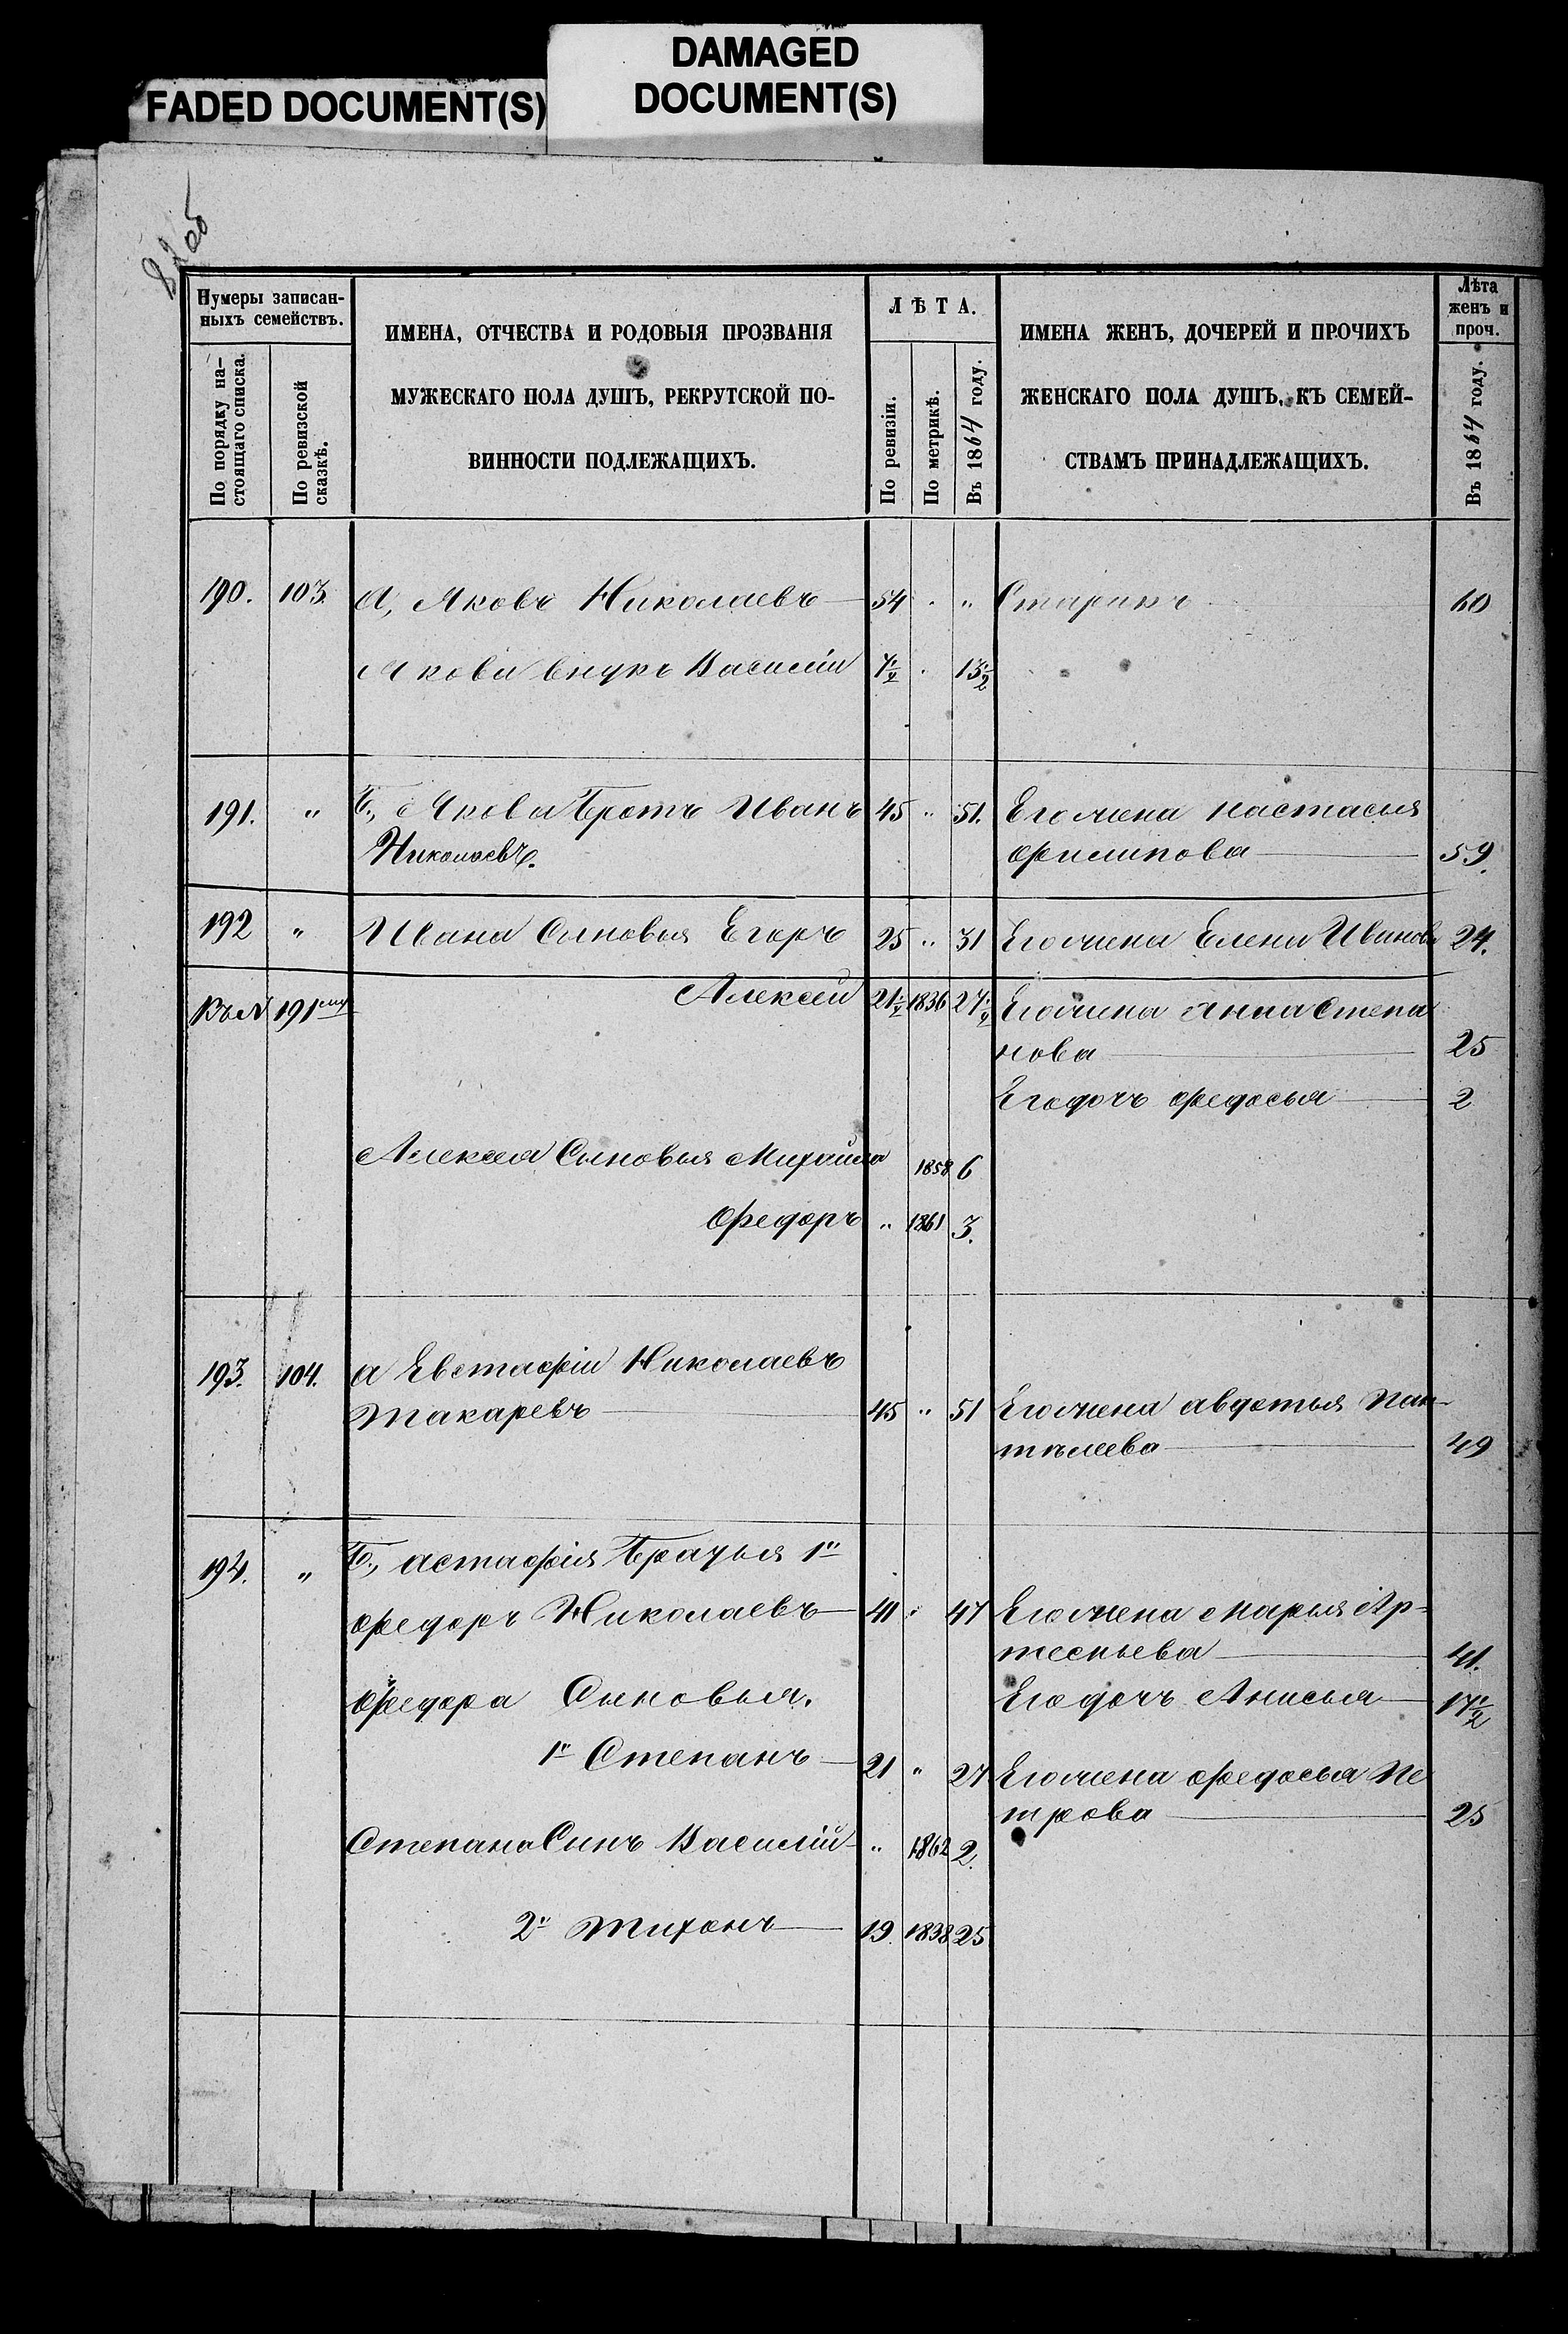 DAMAGED
DOCUMENT(S)
FADED DOCUMENT(S)
82об
Нумеры записан-
ныхъ семействъ.
По порядку на-
стоящаго списка.
По ревизской
сказкѣ.
ИМЕНА, ОТЧЕСТВА И РОДОВЫЯ ПРОЗВАНІЯ
МУЖЕСКАГО ПОЛА ДУШЪ, РЕКРУТСКОЙ ПО-
ВИННОСТИ ПОДЛЕЖАЩИХЪ.
ЛѢТА.
По ревизіи.
По метрикѣ.
Въ 1864 году.
ИМЕНА ЖЕНЪ, ДОЧЕРЕЙ И ПРОЧИХЪ
ЖЕНСКАГО ПОЛА ДУШЪ, КЪ СЕМЕЙ-
СТВАМЪ ПРИНАДЛЕЖАЩИХЪ.
Лѣта
женъ и
проч.
Въ 1864 году.
190. 103. а, Яковъ Николаевъ 54 " Старикъ 60
Якова внукъ Василіи 7½ 13½
191. " Б., Якова Братъ Иванъ 45 " 51. Его жена Настасья
Николаевъ. Филипова 59.
192 " Ивана Сыновья Егоръ 25 " 31 Его жена Елена Иванова 24.
Къ № 191му Алексеи 21½ 1836 27½ Его жена Анна Степа
нова 25
Его дочь Федосья 2
Алексея Сыновья Михаила 1858 6
Федоръ " 1861 3.
193. 104. а Евстафіи Николаевъ
Макаревъ 45 " 51 Его жена Авдотья Пан-
тѣлеева 49
194. " Б., Астафія Братья 1й
Федоръ Николаевъ 41 " 47 Его жена Марья Ар-
темьева 41.
Федора Сыновья. Его дочь Анисья 17½
1й Степанъ 21 " 27 Его жена Федосья Пе
трова 25
Степана Сынъ Василій " 1862 2.
2й Тихонъ 19. 1838 25